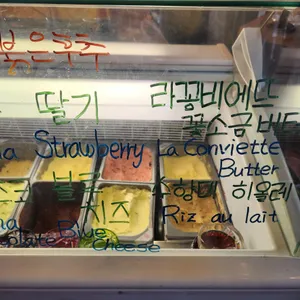 붉은후추
딸기 라꽁비에뜨
꽃소금버터
Strawberry La Conviette
Butter
블루
치즈 히올레
Riz au lait
Blue
Cheese